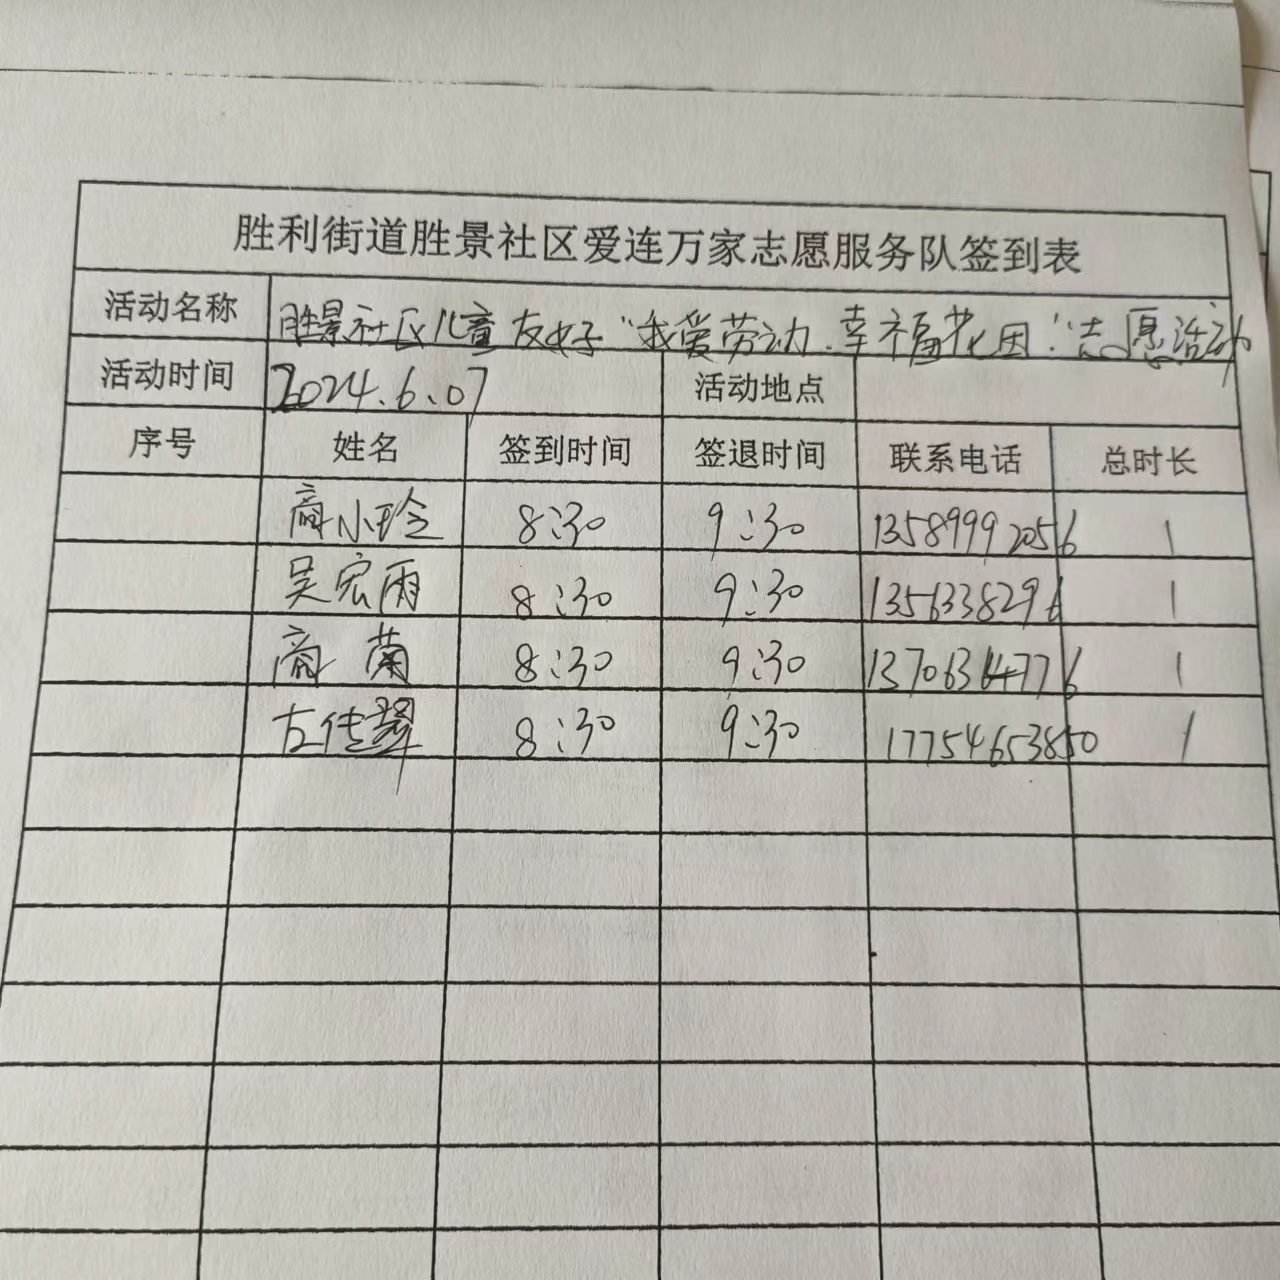 胜利街道胜景社区爱连万家志愿服务队签到表
活动名称 胜景社区儿童友好"我爱劳动.幸福花园"志愿活动
活动时间 2024.6.07 活动地点
序号 姓名 签到时间 签退时间 联系电话 总时长
商小玲 8:30 9:30 13589992056 1
吴宏雨 8:30 9:30 1356338296 1
商菊 8:30 9:30 13706364776 1
左佳 8:30 9:30 17754653850 1